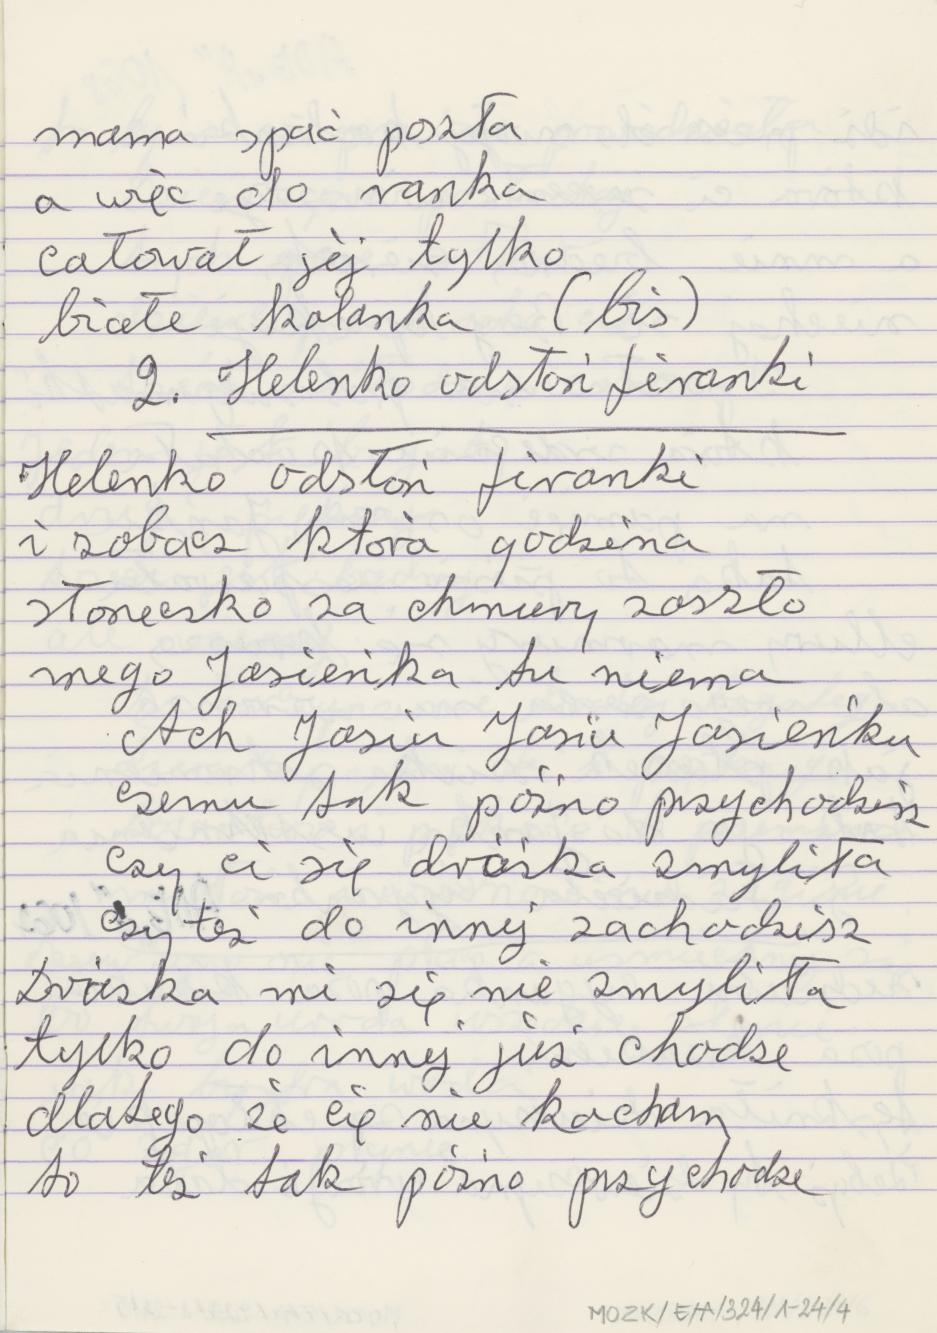 mama spać poszła
a więc do ranka
całował jėj tylko
białe kolanka (bis)
2. Helenko odsłoń firanki
Helenko odsłoń firanki
i zobacz która godzina
słoneczko za chmury zaszło
mego Jasieńka tu niema
Ach Jasiu Jasiu Jasieńku
czemu tak późno przychodzisz
czy ci się dróżka zmyliła
czy też do innej zachodzisz
Dróżka mi się nie zmyliła
tylko do innej już chodze
dlatego że cię nie kocham
to też tak późno przychodze
MOZK/E/A/324/1-24/4